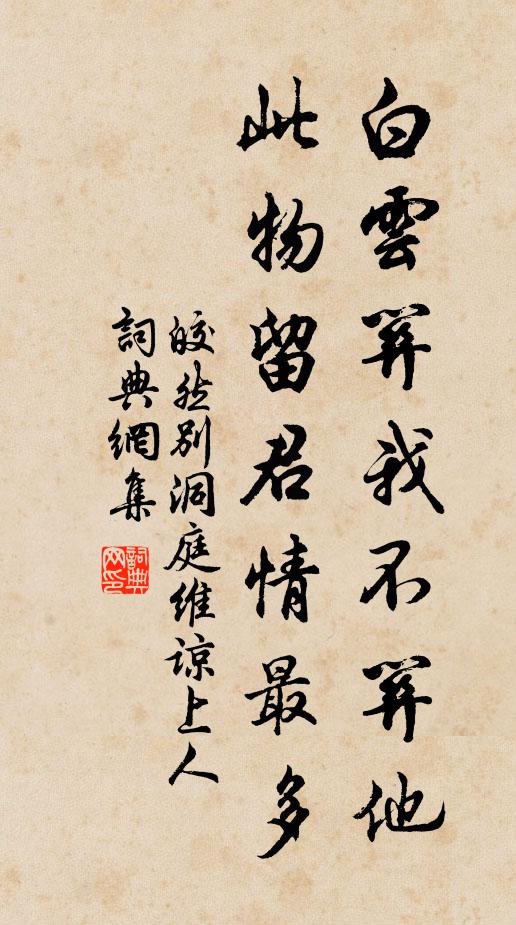 白雲關我不關他
此物留君情最多
皎然別洞庭維諒上人
詞典網集
詞典
網印